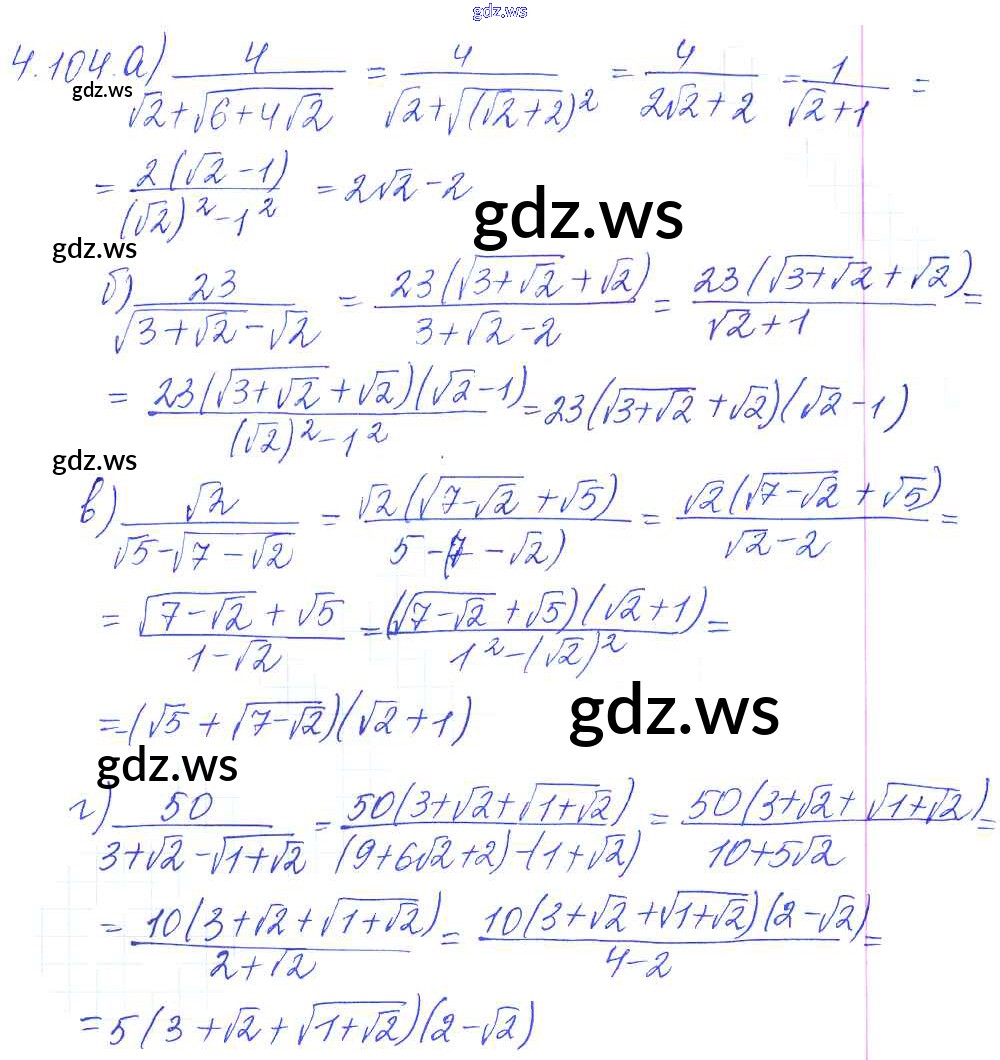 gdz.ws
4.104. а) 4/(√2+√(6+4√2)) = 4/(√2+√((√2+2)²)) = 4/(2√2+2) = 1/(√2+1) =
gdz.ws
= 2(√2-1)/((√2)²-1²) = 2√2-2
gdz.ws
gdz.ws
б) 23/(√(3+√2)-√2) = 23(√(3+√2)+√2)/(3+√2-2) = 23(√(3+√2)+√2)/(√2+1) =
= 23(√(3+√2)+√2)(√2-1)/((√2)²-1²) = 23(√(3+√2)+√2)(√2-1)
gdz.ws
в) √2/(√5-√(7-√2)) = √2(√(7-√2)+√5)/(5-(7-√2)) = √2(√(7-√2)+√5)/(√2-2) =
= (√(7-√2)+√5)/(1-√2) = (√(7-√2)+√5)(√2+1)/(1²-(√2)²) =
= -(√5+√(7-√2))(√2+1)
gdz.ws
gdz.ws
г) 50/(3+√2-√(1+√2)) = 50(3+√2+√(1+√2))/((9+6√2+2)-(1+√2)) = 50(3+√2+√(1+√2))/(10+5√2) =
= 10(3+√2+√(1+√2))/(2+√2) = 10(3+√2+√(1+√2))(2-√2)/(4-2) =
= 5(3+√2+√(1+√2))(2-√2)